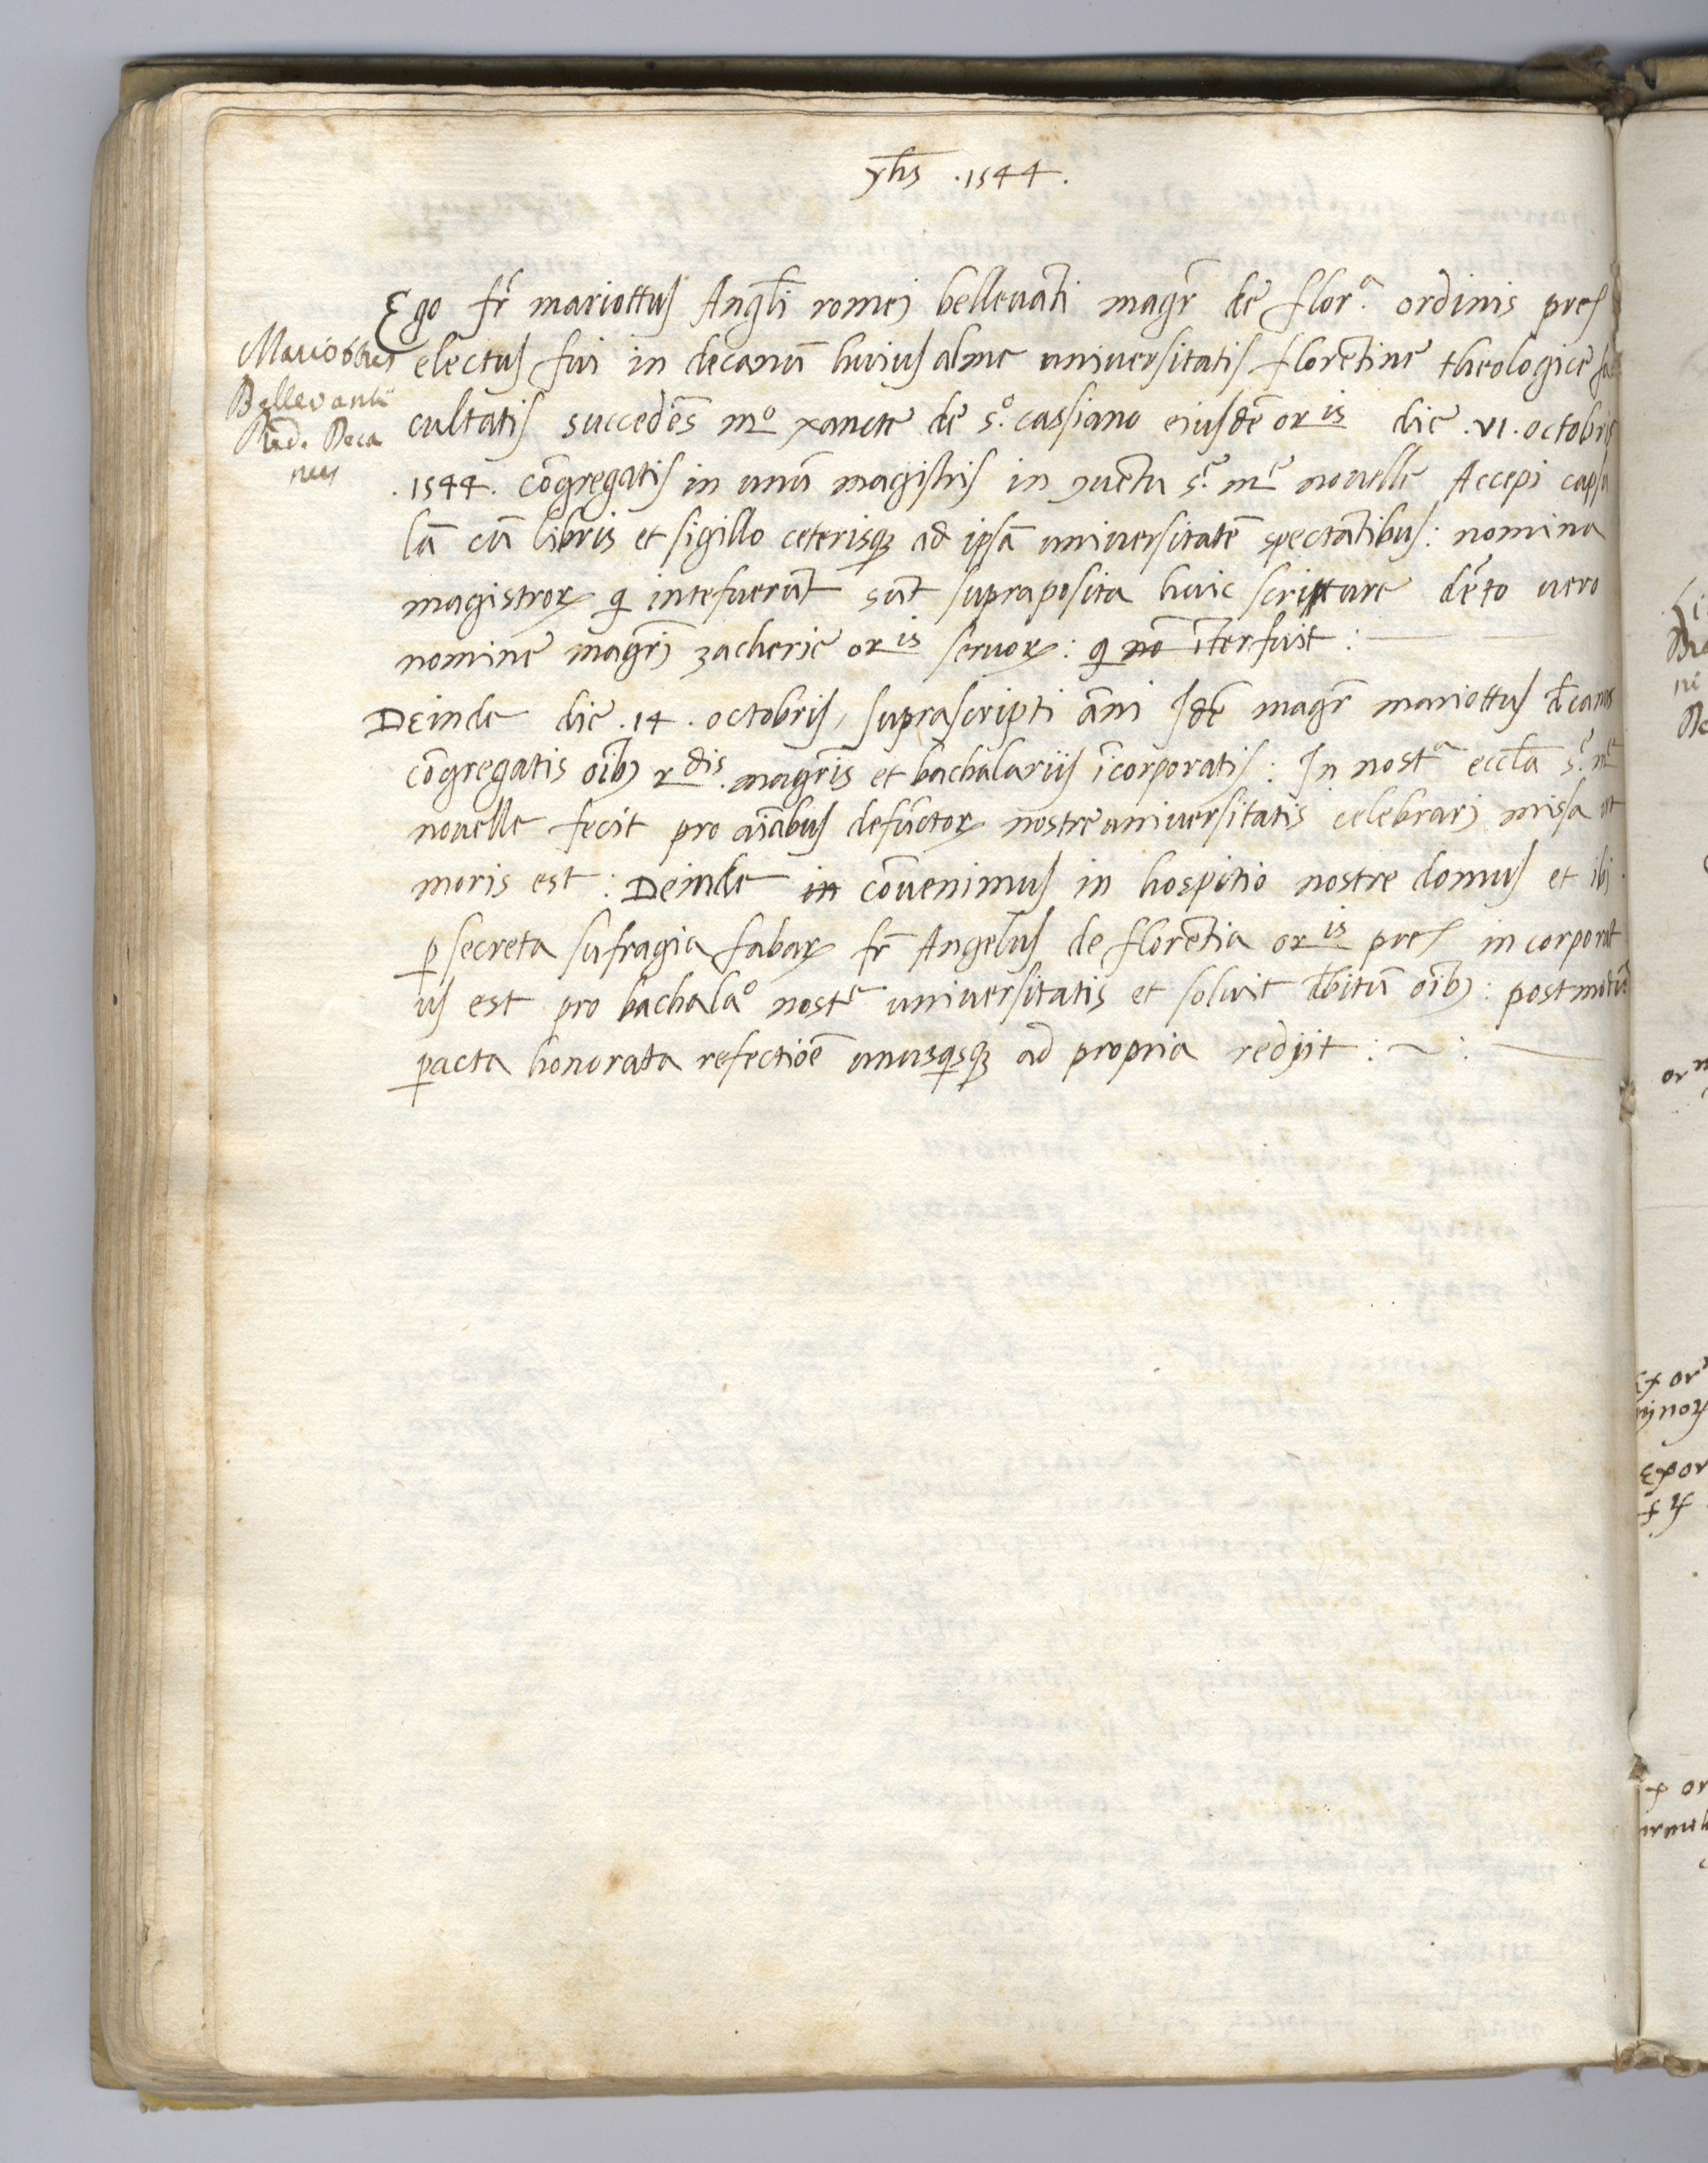 yhs̄ .1544.
Ego fr̄ mariottus Angl̄i romei belleuāti magr̄ de flor.ᵃ ordinis pres
Mariottus
Bellevanti
Rēd. Deca
nus
electus fui in decanū huius alme universitatis florētine theologice fa
cultatis succedēs mᵒ xancte de s.ᵒ cassiano eiusdē orⁱˢ die .vi. octobris
.1544. cōgregatis in unū magistris in yuētu s.ᵉ mᵉ nouelle Accepi capsu
lā cū libris et sigillo ceterisqꝫ ad ipsā uniuersitatē spectātibus: nomina
magistroꝝ q̄ intefuerūt sūt supraposita huic scripture dēto uero
nomine magrī zacherie orⁱˢ seruoꝝ: q nō īterfuit:
Deinde die .14. octobris, suprascripti āni Idē magr̄ mariottus d̄canus
cōgregatis oībꝫ rᵈⁱˢ. magrīs et bachalariis īcorporatis: In nostᵃ eccl̄a s.ᵉ mᵉ
nouelle fecit pro aīabus defūctoꝝ nostre uniuersitatis celebrari missā ut
moris est: Deinde in cōuenimus in hospitio nostre domus et ibi
ꝑ secreta sufragia fabaꝝ fr̄ Angelus de florētia orⁱˢ pres incorporat
us est pro bachalaᵒ nostᵉ uniuersitatis et soluit d̄bitū oībꝫ: postmodū
ꝑacta honorata refectiōe unusqsqꝫ ad propria redijt: ~: